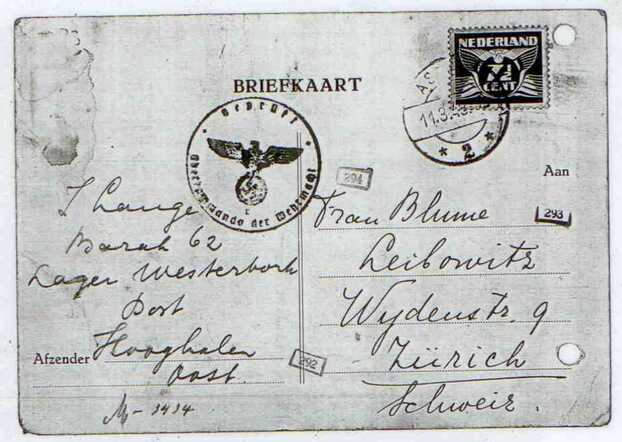 NEDERLAND
7½
CENT
BRIEFKAART
11.3.43
2
Geprüft
Oberkommando der Wehrmacht
Aan
294
293
292
I Lange
Barak 62
Lager Westerbork
Post
Hooghalen
Oost.
Afzender
Frau Blume
Leibowitz
Wydenstr. 9
Zürich
Schweiz.